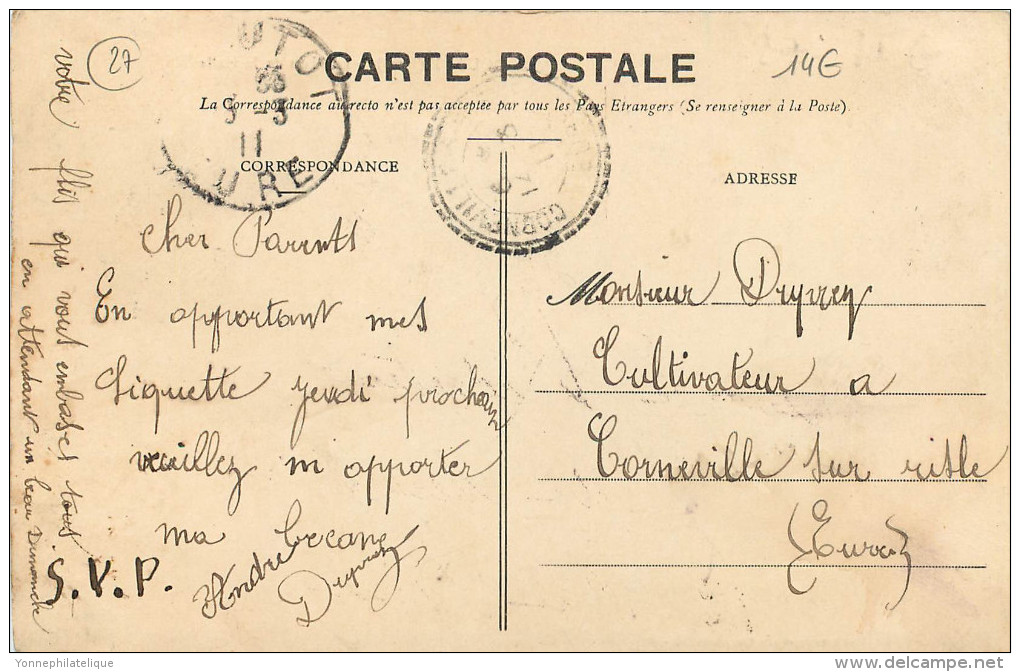 27
CARTE POSTALE
14€
La Correspondance au recto n'est pas acceptée par tous les Pays Etrangers (Se renseigner à la Poste).
UTOT
3-3
11
EURE
CORNEVILLE
CORRESPONDANCE
Cher Parents
En apportant mes
Liquette jeudi prochain
veuillez m apporter
ma becane
S.V.P.
André
votre fils qui vous embasse tous
en attendant un beau Dimanche
ADRESSE
Monsieur
Cultivateur a
Corneville sur risle
(Eure)
Yonnephilatelique
www.delcampe.net